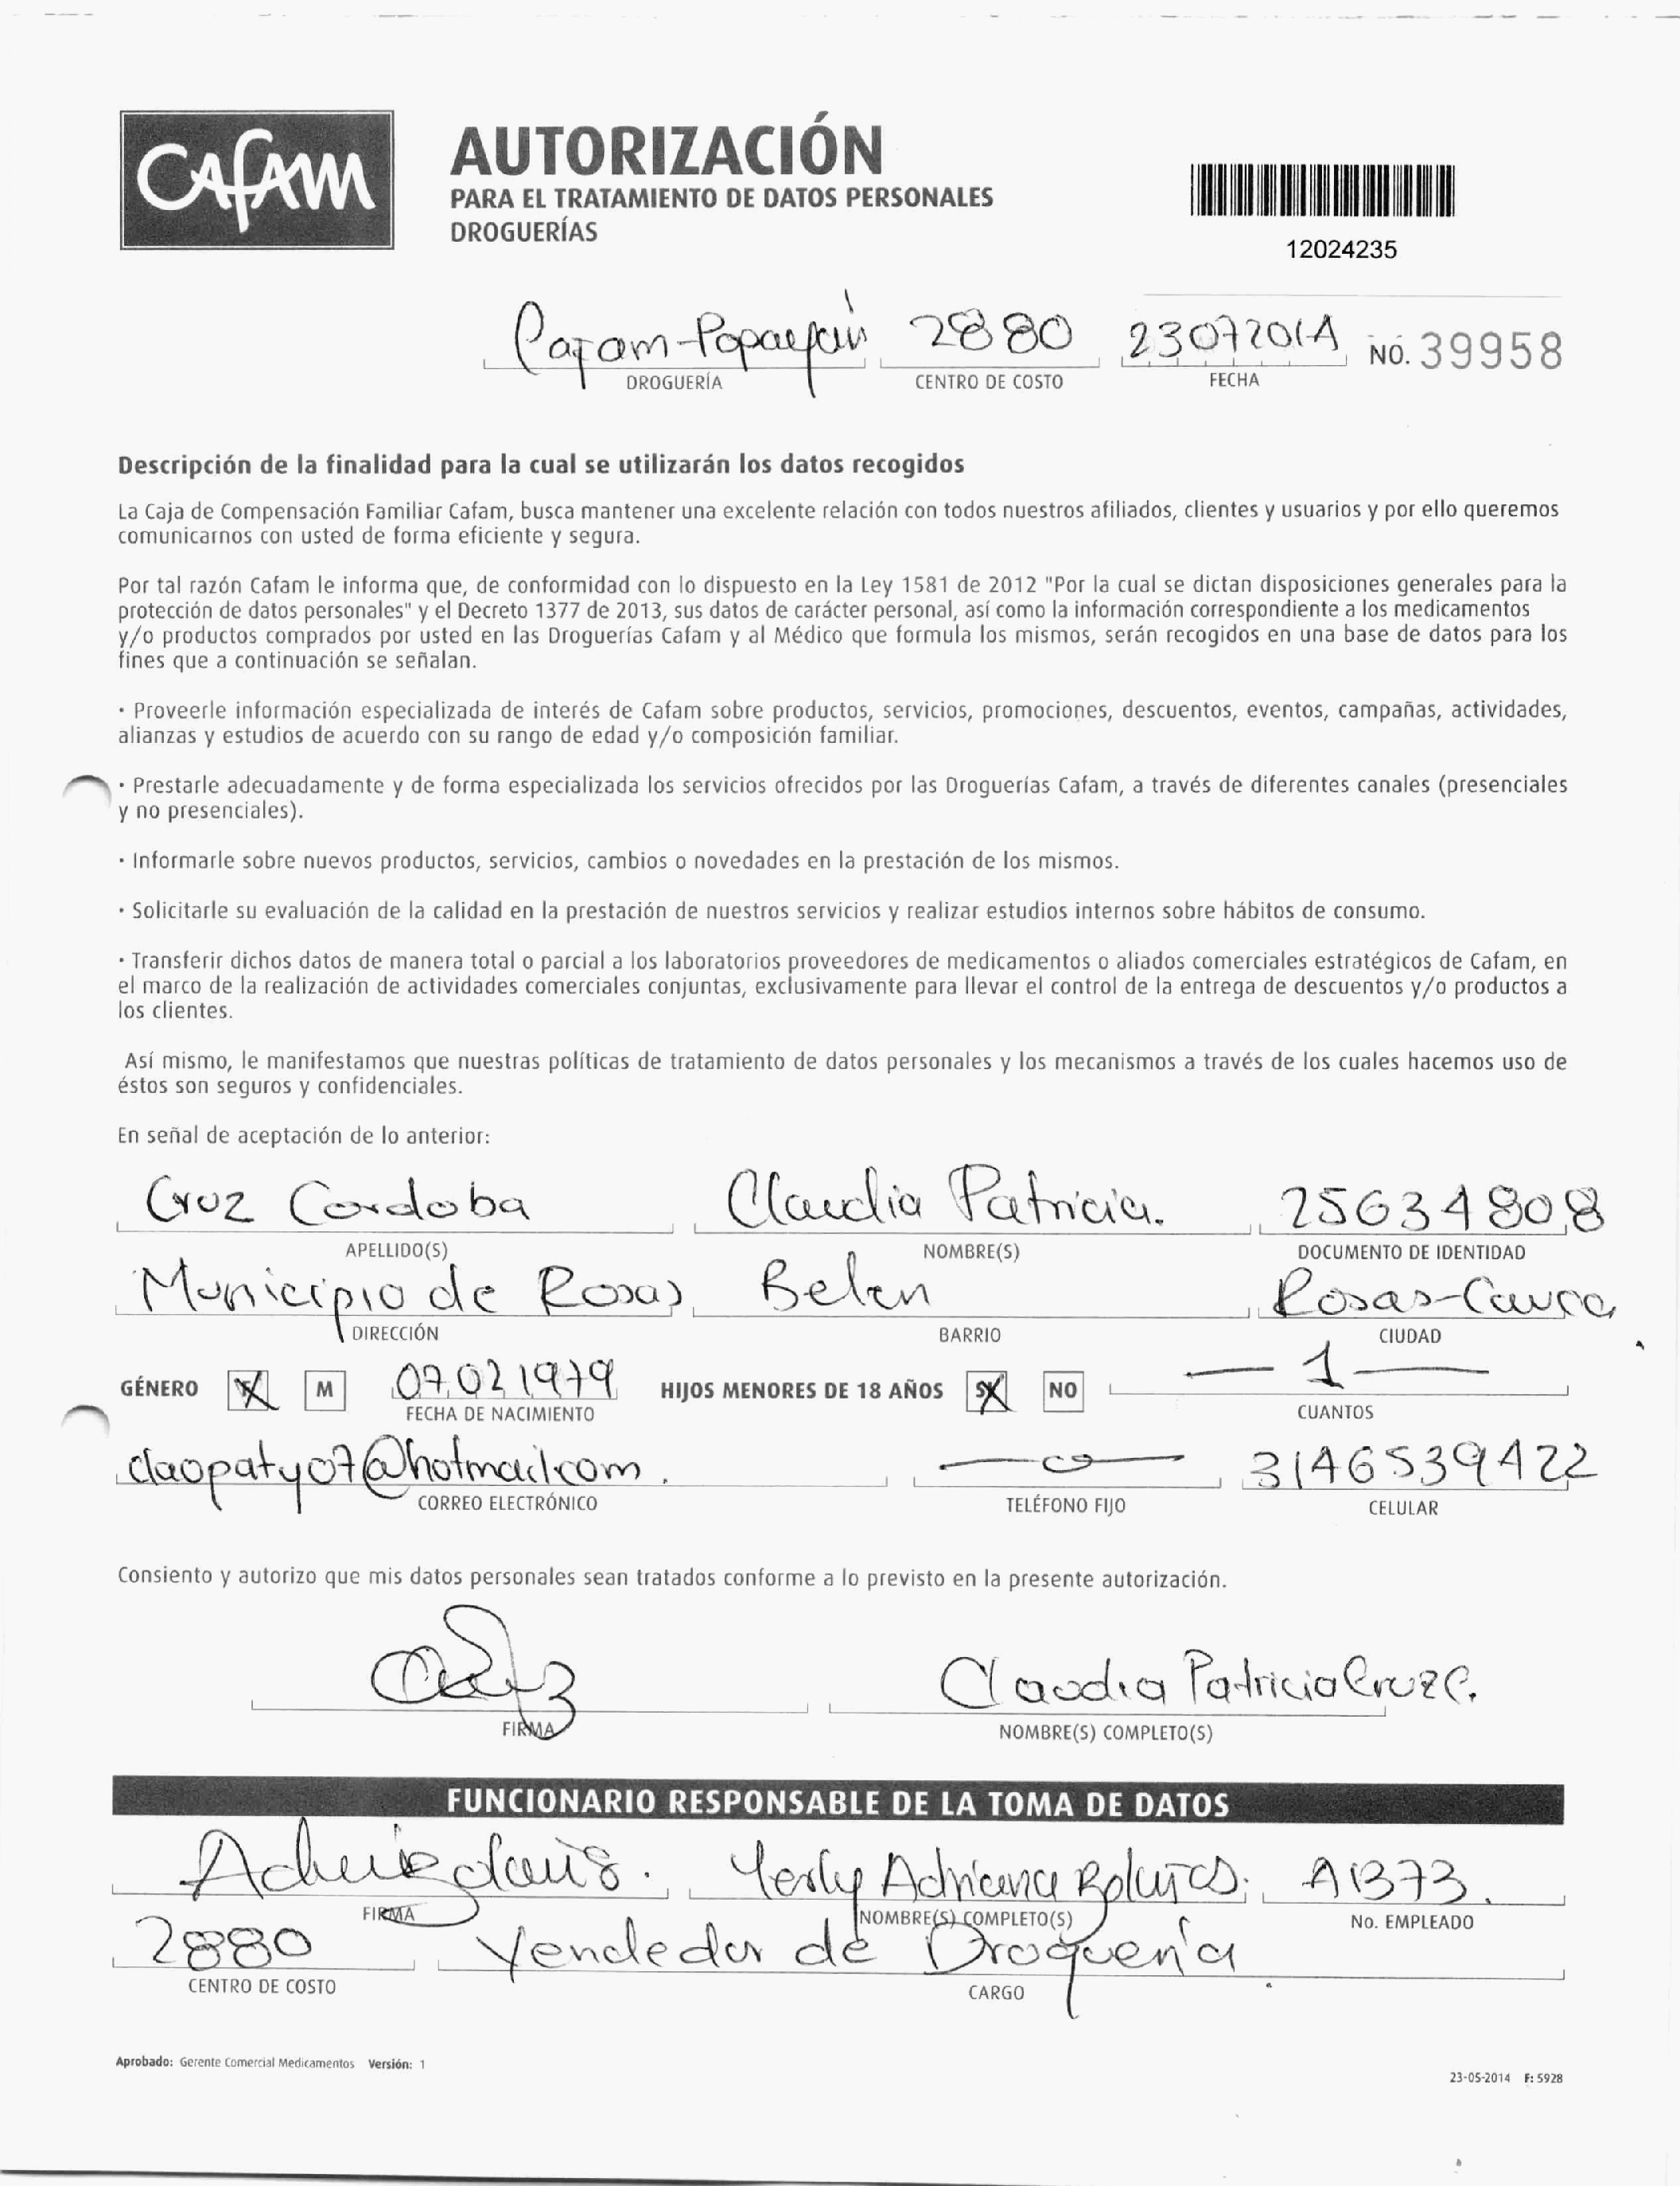 Cafam
AUTORIZACIÓN
PARA EL TRATAMIENTO DE DATOS PERSONALES
DROGUERÍAS
12024235
Cafam-Popayán 2880 23072014 NO. 39958
DROGUERÍA CENTRO DE COSTO FECHA
Descripción de la finalidad para la cual se utilizarán los datos recogidos
La Caja de Compensación Familiar Cafam, busca mantener una excelente relación con todos nuestros afiliados, clientes y usuarios y por ello queremos
comunicarnos con usted de forma eficiente y segura.
Por tal razón Cafam le informa que, de conformidad con lo dispuesto en la Ley 1581 de 2012 "Por la cual se dictan disposiciones generales para la
protección de datos personales" y el Decreto 1377 de 2013, sus datos de carácter personal, así como la información correspondiente a los medicamentos
y/o productos comprados por usted en las Droguerías Cafam y al Médico que formula los mismos, serán recogidos en una base de datos para los
fines que a continuación se señalan.
· Proveerle información especializada de interés de Cafam sobre productos, servicios, promociones, descuentos, eventos, campañas, actividades,
alianzas y estudios de acuerdo con su rango de edad y/o composición familiar.
· Prestarle adecuadamente y de forma especializada los servicios ofrecidos por las Droguerías Cafam, a través de diferentes canales (presenciales
y no presenciales).
· Informarle sobre nuevos productos, servicios, cambios o novedades en la prestación de los mismos.
· Solicitarle su evaluación de la calidad en la prestación de nuestros servicios y realizar estudios internos sobre hábitos de consumo.
· Transferir dichos datos de manera total o parcial a los laboratorios proveedores de medicamentos o aliados comerciales estratégicos de Cafam, en
el marco de la realización de actividades comerciales conjuntas, exclusivamente para llevar el control de la entrega de descuentos y/o productos a
los clientes.
Así mismo, le manifestamos que nuestras políticas de tratamiento de datos personales y los mecanismos a través de los cuales hacemos uso de
éstos son seguros y confidenciales.
En señal de aceptación de lo anterior:
Cruz Cordoba Claudia Patricia. 25634808
APELLIDO(S) NOMBRE(S) DOCUMENTO DE IDENTIDAD
Municipio de Rosas Belen Rosas-Cauca
DIRECCIÓN BARRIO CIUDAD
GÉNERO F M 07021979 HIJOS MENORES DE 18 AÑOS SI NO 1
FECHA DE NACIMIENTO CUANTOS
claopaty07@hotmail.com 3146539422
CORREO ELECTRÓNICO TELÉFONO FIJO CELULAR
Consiento y autorizo que mis datos personales sean tratados conforme a lo previsto en la presente autorización.
Claudia Patricia Cruz C.
FIRMA NOMBRE(S) COMPLETO(S)
FUNCIONARIO RESPONSABLE DE LA TOMA DE DATOS
Yesly Adriana A1373.
FIRMA NOMBRE(S) COMPLETO(S) No. EMPLEADO
2880 Vendedor de Droguería
CENTRO DE COSTO CARGO
Aprobado: Gerente Comercial Medicamentos Versión: 1
23-05-2014 F: 5928